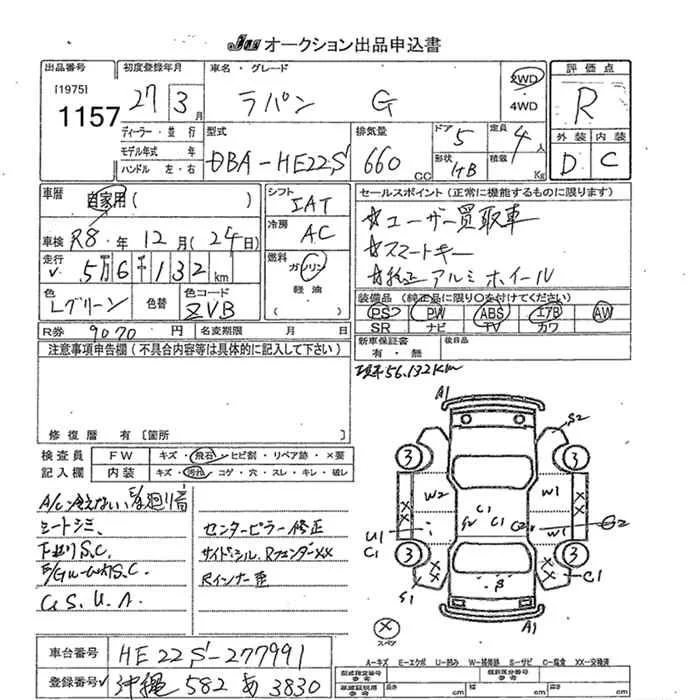 JU オークション出品申込書
出品番号 初度登録年月 車名・グレード 評価点
[1975]
1157
27 3月
ラパン G
2WD
4WD
R
ディーラー・並行
モデル年式 年
ハンドル 左・右
型式
DBA-HE22S
排気量
660 CC
ドア 5
定員 4人
形状 HB
積載 Kg
外装 内装
D C
車歴 自家用( )
シフト IAT
車検 R8年 12月(24日)
冷房 AC
走行 5万6千132km
燃料 ガソリン
軽油
色 Lグリーン 色替 色コード ZVB
R券 9070円 名変期限 月 日
セールスポイント(正常に機能するものに限ります)
☆ユーザー買取車
☆スマートキー
☆純正アルミホイール
装備品(純正品に限り○を付けてください)
PS PW ABS エアB AW
SR ナビ TV カワ
新車保証書 後日品
有・無
注意事項申告欄(不具合内容等は具体的に記入して下さい)
修復歴 有 [箇所 ]
検査員 FW キズ・飛石・ヒビ割・リペア跡・×要
記入欄 内装 キズ・汚れ・コゲ・穴・スレ・キレ・破レ
56,132km
A/C冷えない、
シートシミ、
下廻りS.C.
G.S.U.A.
センターピラー修正
サイドシル、RフェンダーXX
Rインナー
A1
S2
3 3
W2 W1
C1
G2 C1 G2 W1 G2
U1
C1
3 3
C1
S1
A1
スペア
車台番号 HE22S-277991
登録番号 沖縄 582 あ 3830
A-キズ E-エクボ U-凹み W-補修跡 S-サビ C-腐食 XX-交換済
型式指定番号 類別区分番号
長さ cm 幅 cm 高さ cm